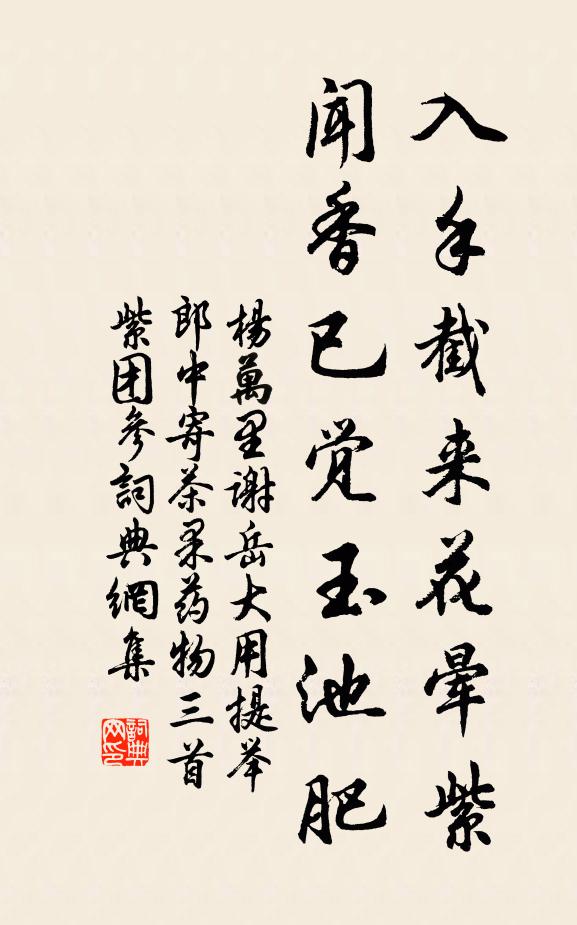 入手截来花晕紫
闻香已觉玉池肥
楊萬里谢岳大用提举
郎中寄茶果药物三首
紫团参詞典網集
詞典
网印